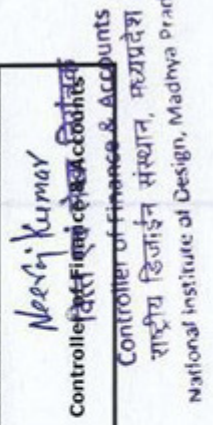 Neeraj Kumar
Controller of Finance & Accounts
वित्त एवं लेखा नियंत्रक
Controller of Finance & Accounts
राष्ट्रीय डिजाईन संस्थान, मध्यप्रदेश
National Institute of Design, Madhya